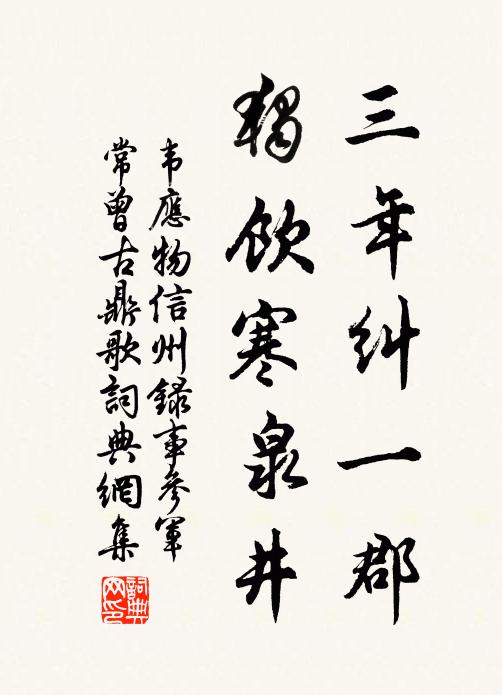 三年纠一郡
独饮寒泉井
韦應物信州録事參軍
常曾古鼎歌詞典網集
詞典網印